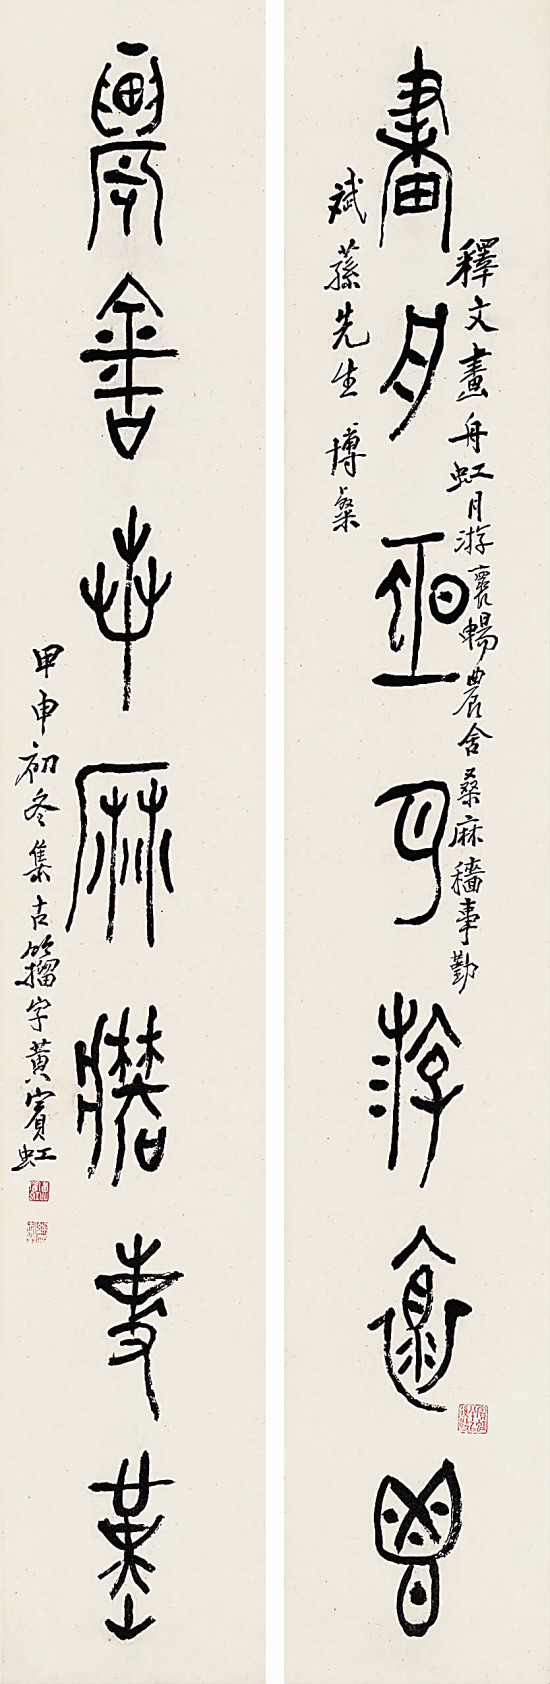 畫舟虹月游褱暢
釋文畫舟虹月游褱暢農舍桑麻穡事勤
斌蓀先生 博粲
農舍桑麻穡事勤
甲申初冬集古籀字黃賓虹